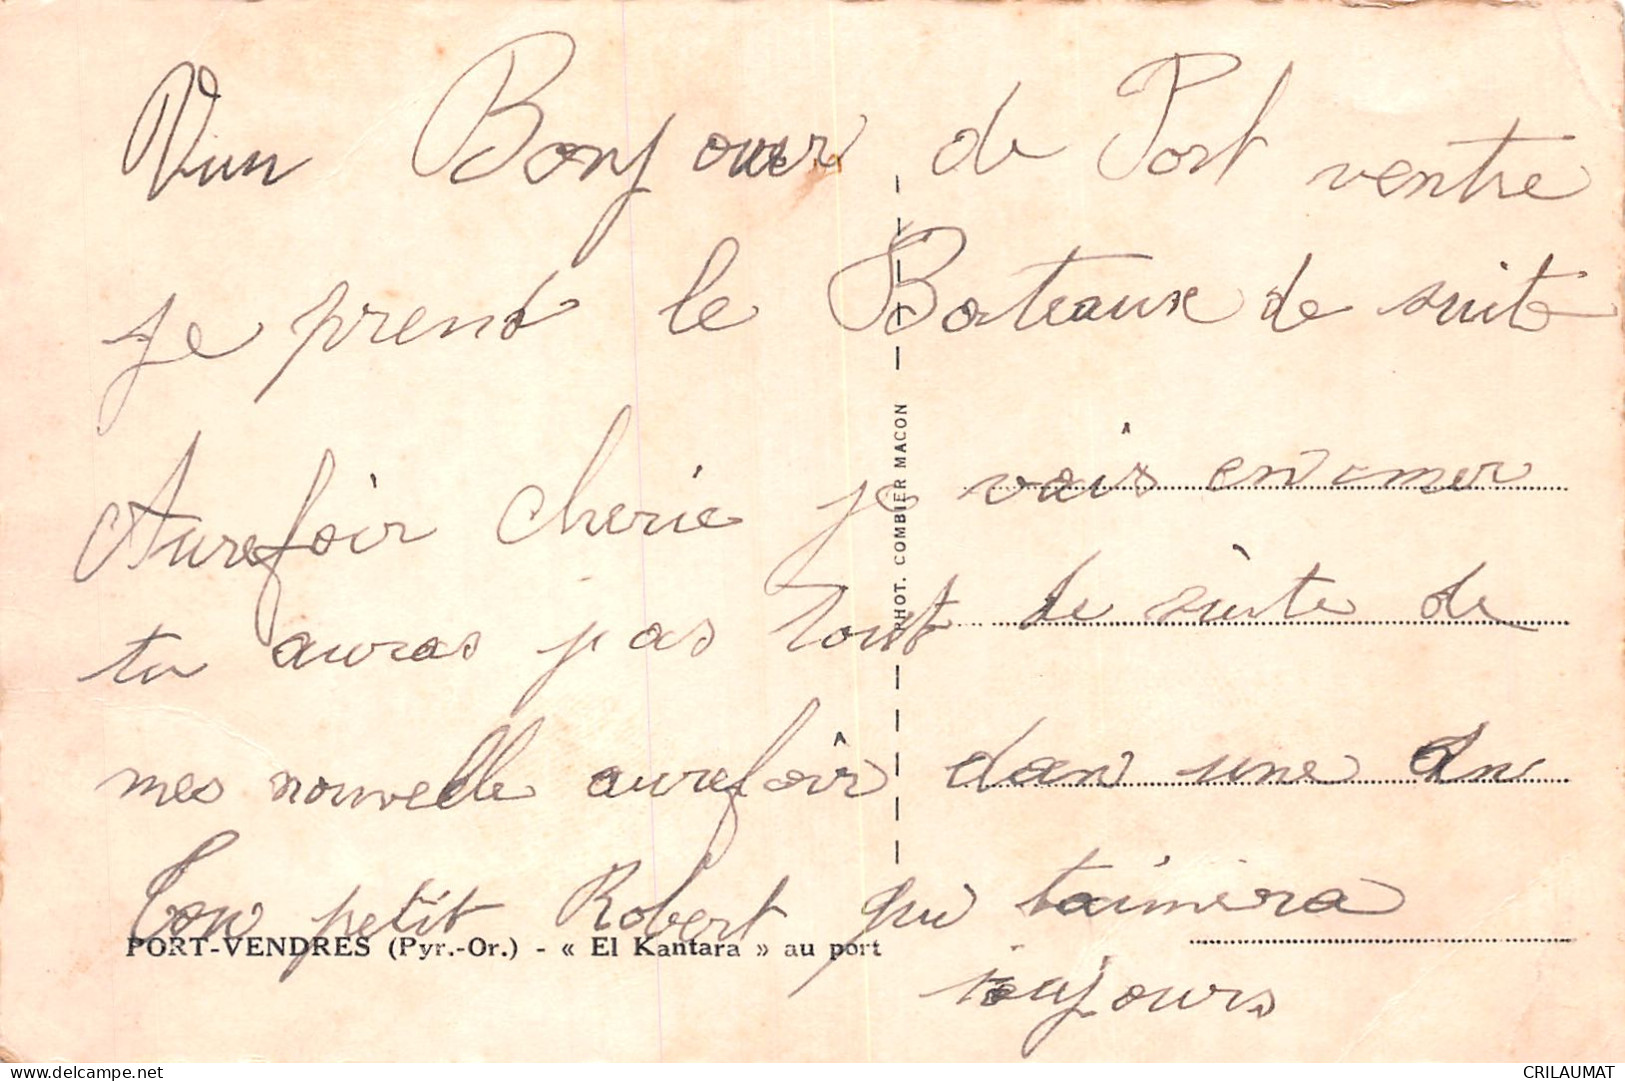 Vun Bonjouer de Port ventre
je prend le Boteaux de suite
Aurefoir cherie je vais en mer
tu auras pas tout de suite de
mes nouvelle aurefoir dan une An
Ton petit Robert qui taimera
toujours
PORT-VENDRES (Pyr.-Or.) - « El Kantara » au port
PHOT. COMBIER MACON
delcampe.net
CRILAUMAT